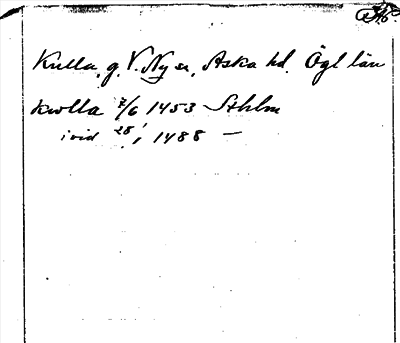 Kulla, g. V. Ny sn, Aska hd. Ögl län
kwlla 7/6 1453 Sthlm
ivid 28/1 1488 —